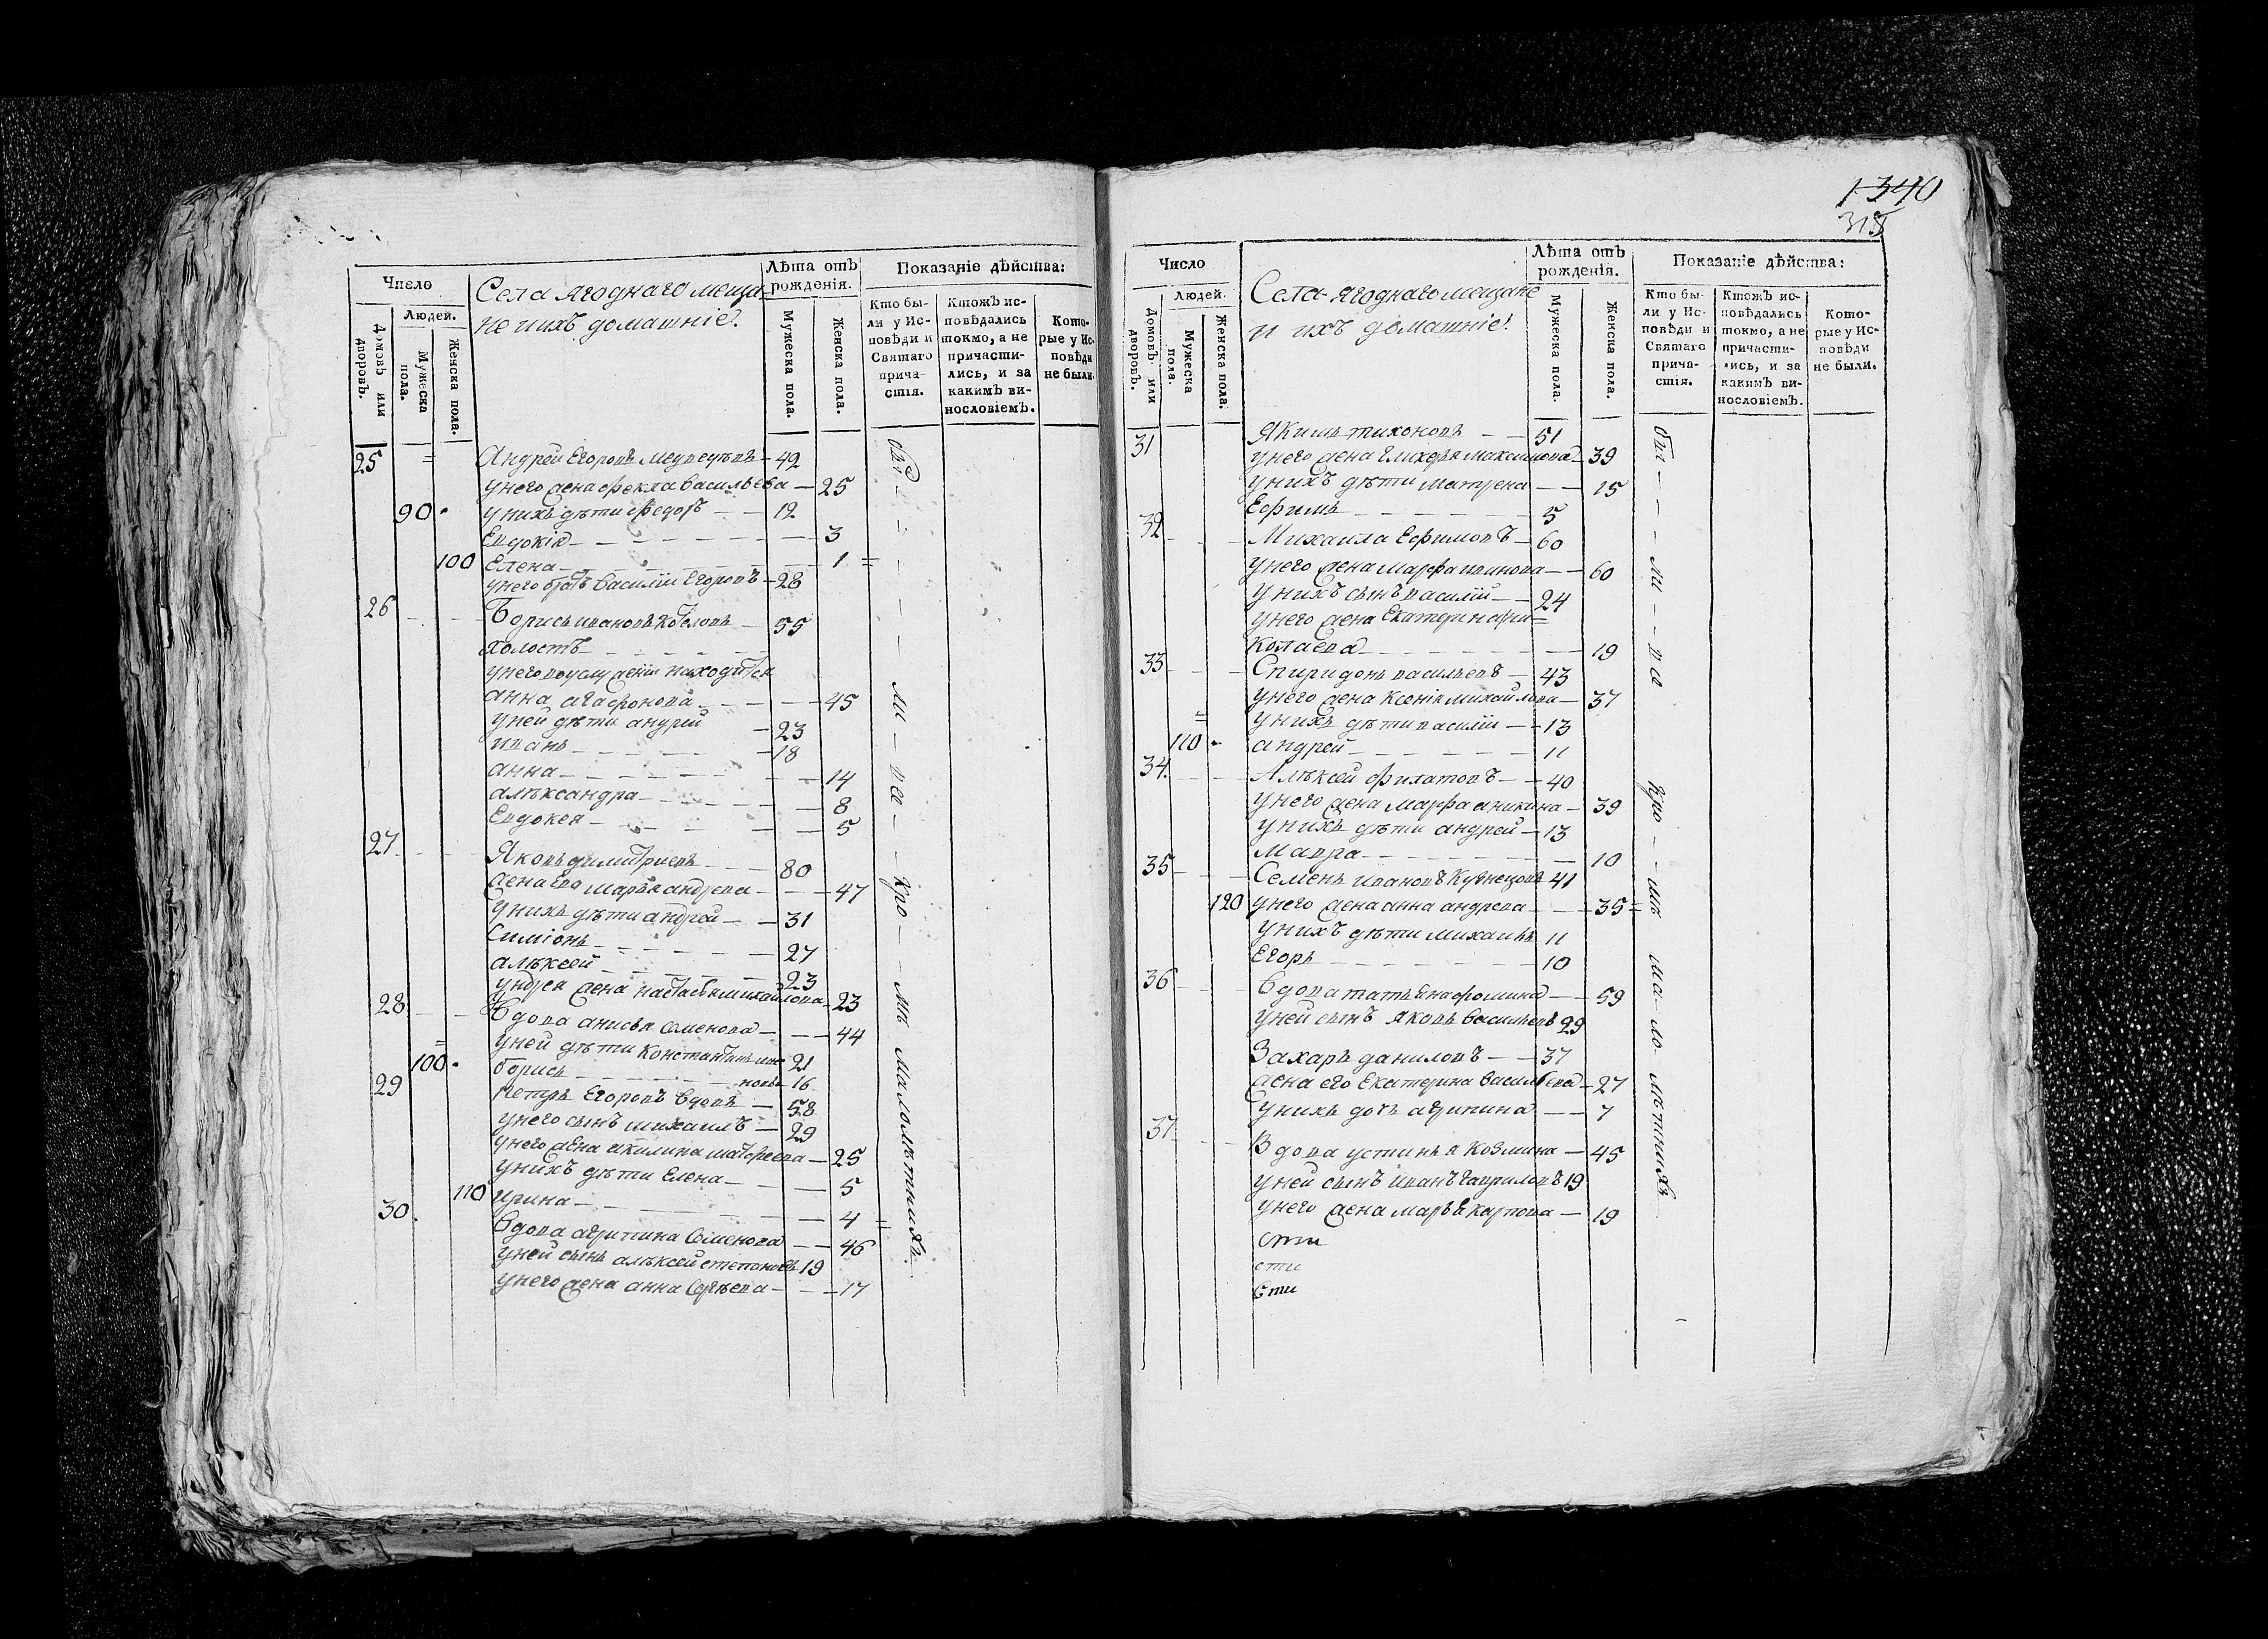 Число
Людей.
Домовъ или дворовъ.
Мужеска пола.
Женска пола.
Села Ягоднаго меща-
не и ихъ домашніе.
Лѣта отъ рожденія.
Мужеска пола.
Женска пола.
Показаніе дѣйства:
Кто бы-
ли у Ис-
повѣди и
Святаго
прича-
стія.
Ктожъ ис-
повѣдались
токмо, а не
причасти-
лись, и за
какимъ ви-
нословіемъ.
Кото-
рые у Ис-
повѣди
не были.
25 Андрей Егоровъ 42
у него жена Фекла Васильева 25
90 у нихъ дѣти Федоръ 12
Евдокія 3
100 Елена 1
у него братъ Василій Егоровъ 28
26 Борисъ Ивановъ Козловъ 55
холостъ
у него находится
анна агафонова 45
у ней дѣти андрей 23
иванъ 18
анна 14
алѣксандра 8
Евдокея 5
27 Яковъ димитриевъ 80
жена Его марья андрева 47
у нихъ дѣти андрей 31
Симіонъ 27
алѣксей 23
у ндрея жена настасья михайлова 23
28 Вдова анисья Семенова 44
у ней дѣти Константинъ 21
100 борисъ 16
29 Петръ Егоровъ Вдовъ 58
у него сынъ михаилъ 29
у него жена акилина матфеева 25
у нихъ дѣти Елена 5
110 Ирина 4
30 Вдова агрипина Семенова 46
у ней сынъ алѣксей степановъ 19
у него жена анна Сергѣева 17
бы ли всѣ кро мѣ малолѣтнихъ.
1340
315
Число
Людей.
Домовъ или дворовъ.
Мужеска пола.
Женска пола.
Села Ягоднаго мещане
и ихъ домашніе.
Лѣта отъ рожденія.
Мужеска пола.
Женска пола.
Показаніе дѣйства:
Кто бы-
ли у Ис-
повѣди и
Святаго
прича-
стія.
Ктожъ ис-
повѣдались
токмо, а не
причасти-
лись, и за
какимъ ви-
нословіемъ.
Кото-
рые у Ис-
повѣди
не были.
31 Якимъ тихоновъ 51
у него жена Гликерья максимова 39
у нихъ дѣти матрена 15
Ефимъ 5
32 Михаила Ефимовъ 60
у него жена марфа иванова 60
у нихъ сынъ василій 24
у него жена Екатерина ни-
колаева 19
33 Спиридонъ васильевъ 43
у него жена Ксенія михайлова 37
у нихъ дѣти василій 13
110 андрей 11
34 Алѣксей филатовъ 40
у него жена марфа аникина 39
у нихъ дѣти андрей 13
мавра 10
35 Семенъ ивановъ Кузнецовъ 41
120 у него жена анна андрева 35
у нихъ дѣти михаилъ 11
Егоръ 10
36 Вдова татьяна фомина 59
у ней сынъ яковъ Васильевъ 29
Захаръ даниловъ 37
жена его Екатерина Васильева 27
у нихъ дочь агрипина 7
37 Вдова устинья Козмина 45
у ней сынъ иванъ гавриловъ 19
у него жена марья карпова 19
сти
сти
сти
бы ли всѣ кро мѣ ма ло лѣтнихъ